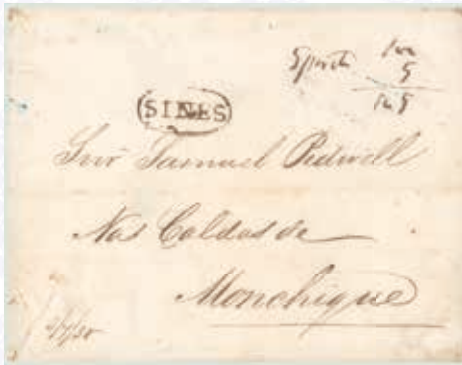 5
SINES
Snr Samuel Pidwell
Nas Caldas de
Monchique